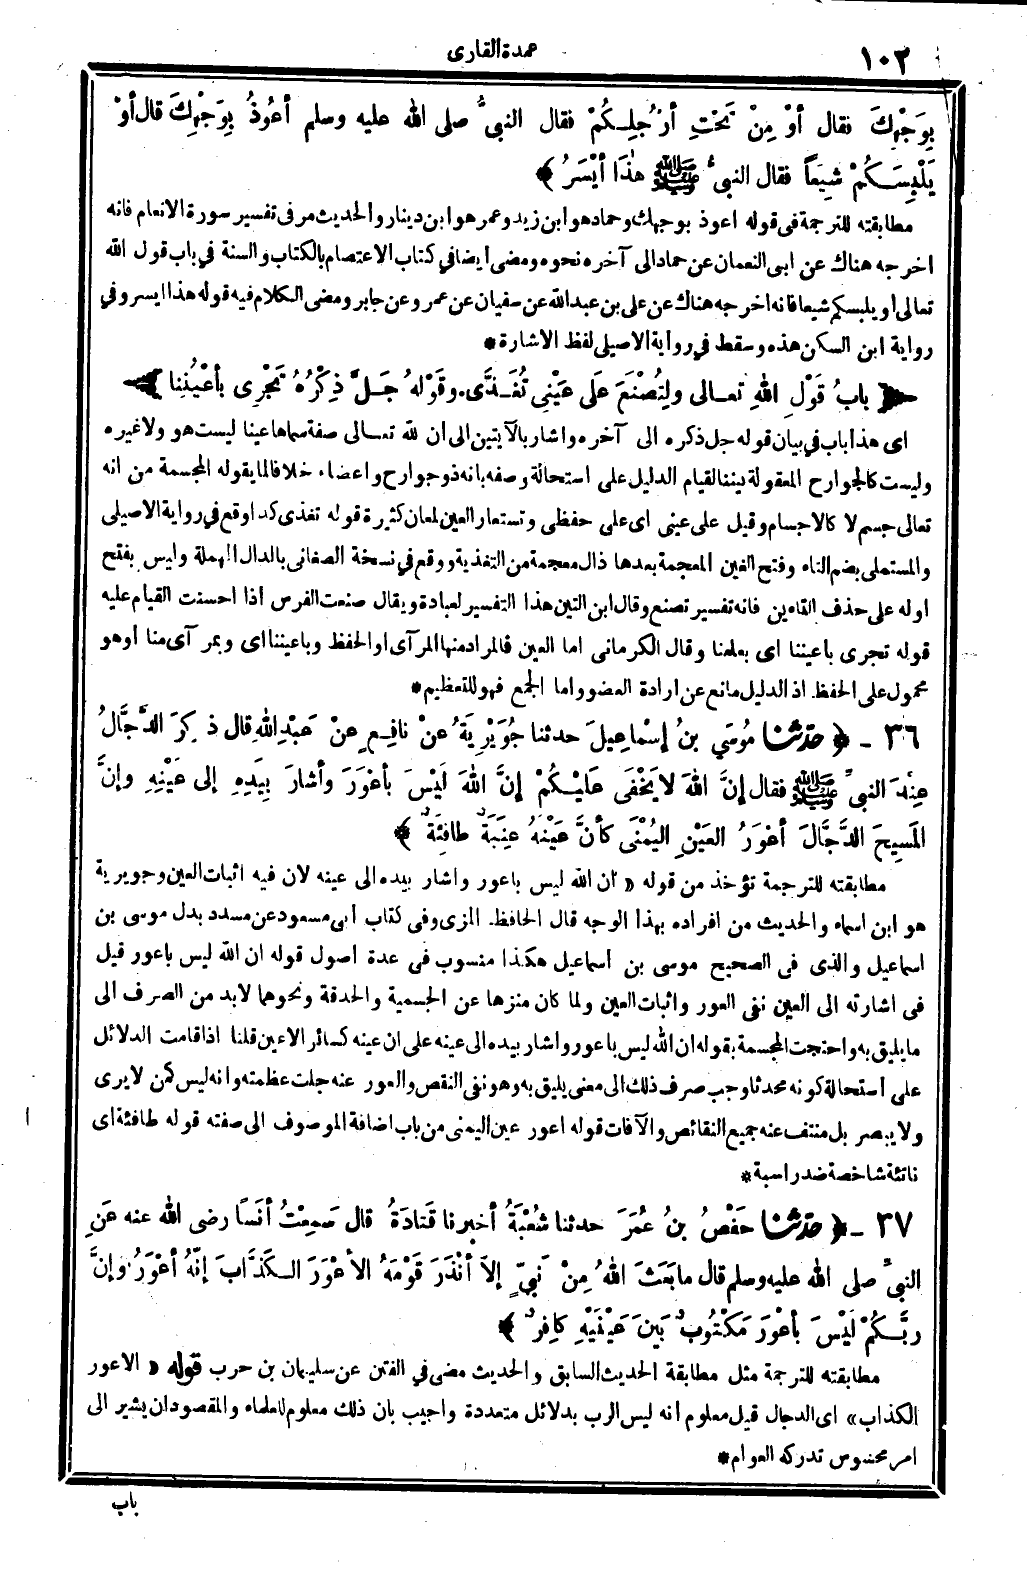 ١٠٢
عمدة القارى
بِوَجْهِكَ فقال أوْ مِنْ تَحْتِ أرْجُلِكُمْ فقال النبىُّ صلى الله عليه وسلم أعُوذُ بِوَجْهِكَ قال أوْ
يَلْبِسَكُمْ شِيَعاً فقال النبىُّ ﷺ هٰذَا أيْسَرُ ﴾
مطابقته للترجمة فى قوله اعوذ بوجهك وحماد هو ابن زيد وعمر هو ابن دينار والحديث مر فى تفسير سورة الانعام فانه
اخرجه هناك عن ابى النعمان عن حماد الى آخره نحوه ومضى ايضا فى كتاب الاعتصام بالكتاب والسنة فى باب قول الله
تعالى أو يلبسكم شيعا فانه اخرجه هناك عن على بن عبد الله عن سفيان عن عمرو عن جابر ومضى الكلام فيه قوله هذا ايسر وفى
رواية ابن السكن هذه وسقط فى رواية الاصيلى لفظ الاشارة *
﴿ بابُ قَوْلِ اللهِ تعالى ولِتُصْنَعَ عَلَى عَيْنِى تُغَذَّى. وقَوْلهُ جَلَّ ذِكْرُهُ تَجْرِى بأعْيُنِنا ﴾
اى هذا باب فى بيان قوله جل ذكره الى آخره واشار بالآيتين الى ان لله تعالى صفة سماها عينا ليست هو ولا غيره
وليست كالجوارح المعقولة بيننا لقيام الدليل على استحالة وصفه بانه ذو جوارح واعضاء خلافا لما يقوله المجسمة من انه
تعالى جسم لا كالاجسام وقيل على عينى اى على حفظى وتستعار العين لمعان كثيرة قوله تغذى كذا وقع فى رواية الاصيلى
والمستملى بضم التاء وفتح الغين المعجمة بعدها ذال معجمة من التغذية ووقع فى نسخة الصغانى بالدال المهملة وليس بفتح
اوله على حذف التاءين فانه تفسير تصنع وقال ابن التين هذا التفسير لعبادة ويقال صنعت الفرس اذا احسنت القيام عليه
قوله تجرى باعيننا اى بعلمنا وقال الكرمانى اما العين فالمراد منها المرآى او الحفظ وباعيننا اى وبمر آى منا أو هو
محمول على الحفظ اذ الدليل مانع عن ارادة العضو واما الجمع فهو للتعظيم *
٣٦ - ﴿ حدثنا مُوسَى بنُ إسْماعِيلَ حدثنا جُوَيْرِيَةُ عنْ نافِعٍ عنْ عَبْدِ اللهِ قال ذُكِرَ الدَّجَّالُ
عِنْدَ النبىِّ ﷺ فقال إنَّ اللهَ لا يَخْفَى عَلَيْكُمْ إنَّ اللهَ لَيْسَ بأعْوَرَ وأشارَ بِيَدِهِ إلى عَيْنِهِ وإنَّ
المَسِيحَ الدَّجَّالَ أعْوَرُ العَيْنِ اليُمْنَى كأنَّ عَيْنَهُ عِنَبَةٌ طافِئَةٌ ﴾
مطابقته للترجمة تؤخذ من قوله « ان الله ليس باعور واشار بيده الى عينه لان فيه اثبات العين وجويرية
هو ابن اسماء والحديث من افراده بهذا الوجه قال الحافظ المزى وفى كتاب أبى مسعود عن مسدد بدل موسى بن
اسماعيل والذى فى الصحيح موسى بن أسماعيل هكذا منسوب فى عدة اصول قوله ان الله ليس باعور قيل
فى اشارته الى العين نفى العور واثبات العين ولما كان منزها عن الجسمية والحدقة ونحوهما لابد من الصرف الى
ما يليق به واحتجت المجسمة بقوله ان الله ليس باعور واشار بيده الى عينه على ان عينه كسائر الاعين قلنا اذا قامت الدلائل
على أستحالة كونه محدثا وجب صرف ذلك الى معنى يليق به وهو نفى النقص والعور عنه جلت عظمته وانه ليس كمن لا يرى
ولا يبصر بل منتف عنه جميع النقائص والآفات قوله اعور عين اليمنى من باب اضافة الموصوف الى صفته قوله طافئة اى
ناتئة شاخصة ضد راسبة *
٣٧ - ﴿ حدثنا حَفْصُ بنُ عُمَرَ حدثنا شُعْبَةُ أخبرنا قَتَادَةُ قال سَمِعْتُ أنَسًا رضى الله عنه عَنِ
النبىِّ صلى الله عليه وسلم قال ما بَعَثَ اللهُ مِنْ نَبِيٍّ إلاَّ أنْذَرَ قَوْمَهُ الأعْوَرَ الكَذَّابَ إنَّهُ أعْوَرُ وإنَّ
ربَّكُمْ لَيْسَ بأعْوَرَ مَكْتُوبٌ بَيْنَ عَيْنَيْهِ كافِرٌ ﴾
مطابقته للترجمة مثل مطابقة الحديث السابق والحديث مضى فى الفتن عن سليمان بن حرب قوله « الاعور
الكذاب» اى الدجال قيل معلوم أنه ليس الرب بدلائل متعددة واجيب بان ذلك معلوم للعلماء والمقصود ان يشير الى
امر محسوس تدركه العوام *
باب